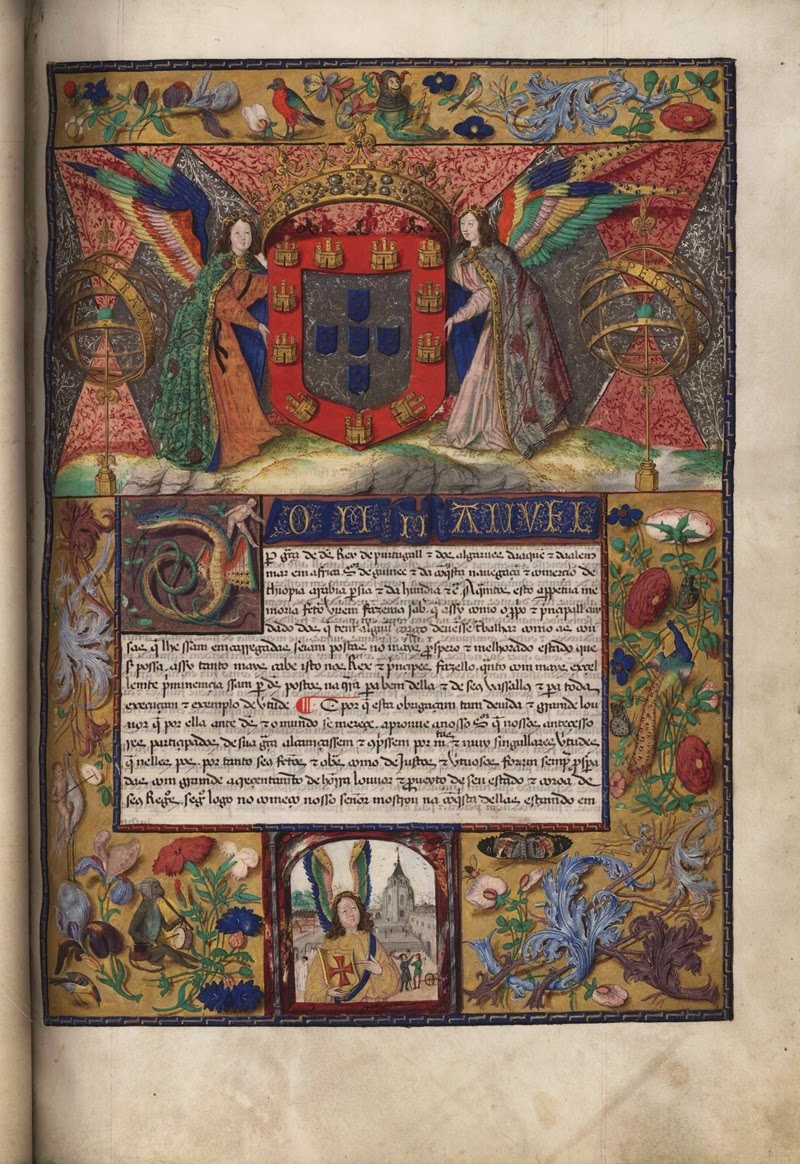 DOM MANVEL
per gra de ds Rey de purtugall & dos algarues daaquē & daalem
mar em africa Sor de guinee & da cōqsta nauegaçā & comercio de
thiopia arabia persia & da Jmdia & c̄ A qntos esta appetua me
moria feta virem fazemos sabr q assy como o ppo & principall cui
dado dos q tem algūu cargo deuesse trabalhar como as cou
sas q lhe ssam emcarregadas seiam postas no mays pspero & melhorado estado que
se possa, assy tanto mays cabe isto nos Reys & prícipes fazello, qnto com mays excel
lemte priminemcia ssam p ds postos na trra pa bem della & de seus vassallos & pa toda
execuçam & exemplo de vtude ¶ E por q esta obrigaçam tam deuida & grande lou
uor q por ella ante ds & o mundo se merece, aprouue a nosso Sor q nossos antecesso
res participados de sua gra alcançassem & opssem por mtas & muy singullares vtudes
q nelles pos, por tanto seus fetos & obrs como de Justos & vtuosos forun sempr psprā
das com grande acrecentamto de horra louuor & proueyto de seu estado & coroa de
seus Regos. segº logo no começo nosso señor mostrou na cōqsta dellas, estando em